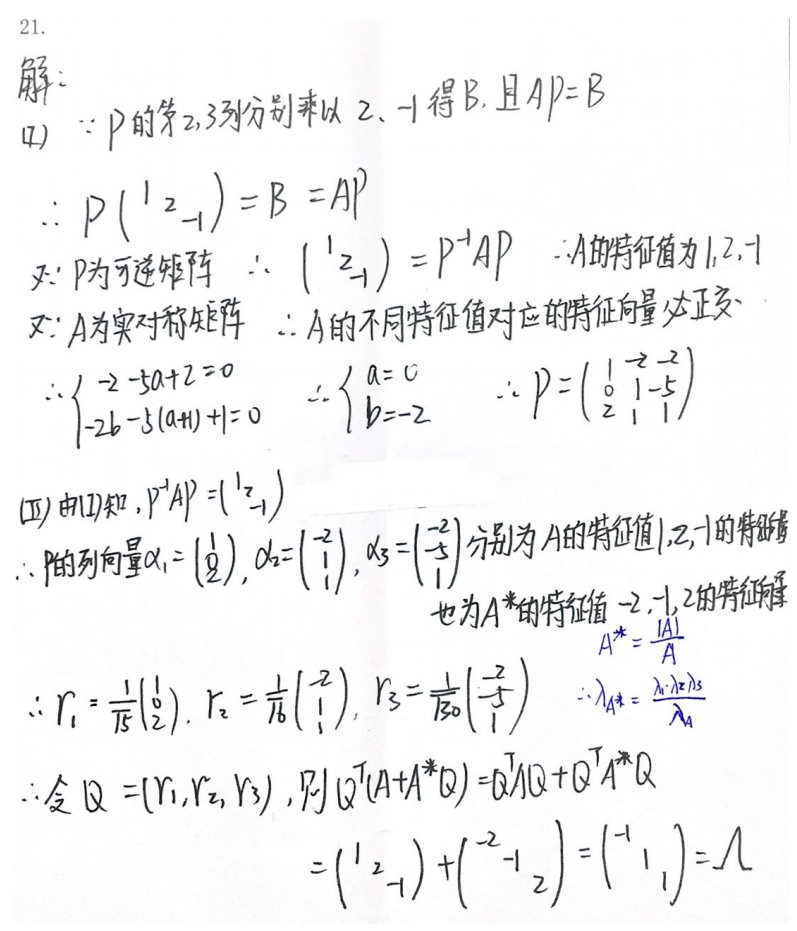 21.
解:
(I) ∵ P的第2,3列分别乘以 2、-1 得B, 且AP=B
∴ P(1 2 -1) = B = AP
又∵ P为可逆矩阵 ∴ (1 2 -1) = P⁻¹AP ∴A的特征值为1,2,-1
又∵ A为实对称矩阵 ∴ A的不同特征值对应的特征向量必正交
∴ { -2 -5a+2=0 ∴ { a=0 ∴ P = (1 -2 -2
-2b-5(a+1)+1=0 b=-2 0 1 -5
2 1 1)
(II) 由(I)知, P⁻¹AP = (1 2 -1)
∴ P的列向量α₁=(1 0 2), α₂=(-2 1 1), α₃=(-2 -5 1) 分别为A的特征值1,2,-1的特征向量
也为A*的特征值 -2,-1,2的特征向量
A* = |A|/A
∴ r₁ = 1/√5 (1 0 2), r₂ = 1/√6 (-2 1 1), r₃ = 1/√30 (-2 -5 1) ∴λ_A* = λ₁·λ₂λ₃/λ_A
∴令 Q =(r₁, r₂, r₃), 则 Qᵀ(A+A*Q) = QᵀAQ+QᵀA*Q
= (1 2 -1) + (-2 -1 2) = (-1 1 1) = Λ